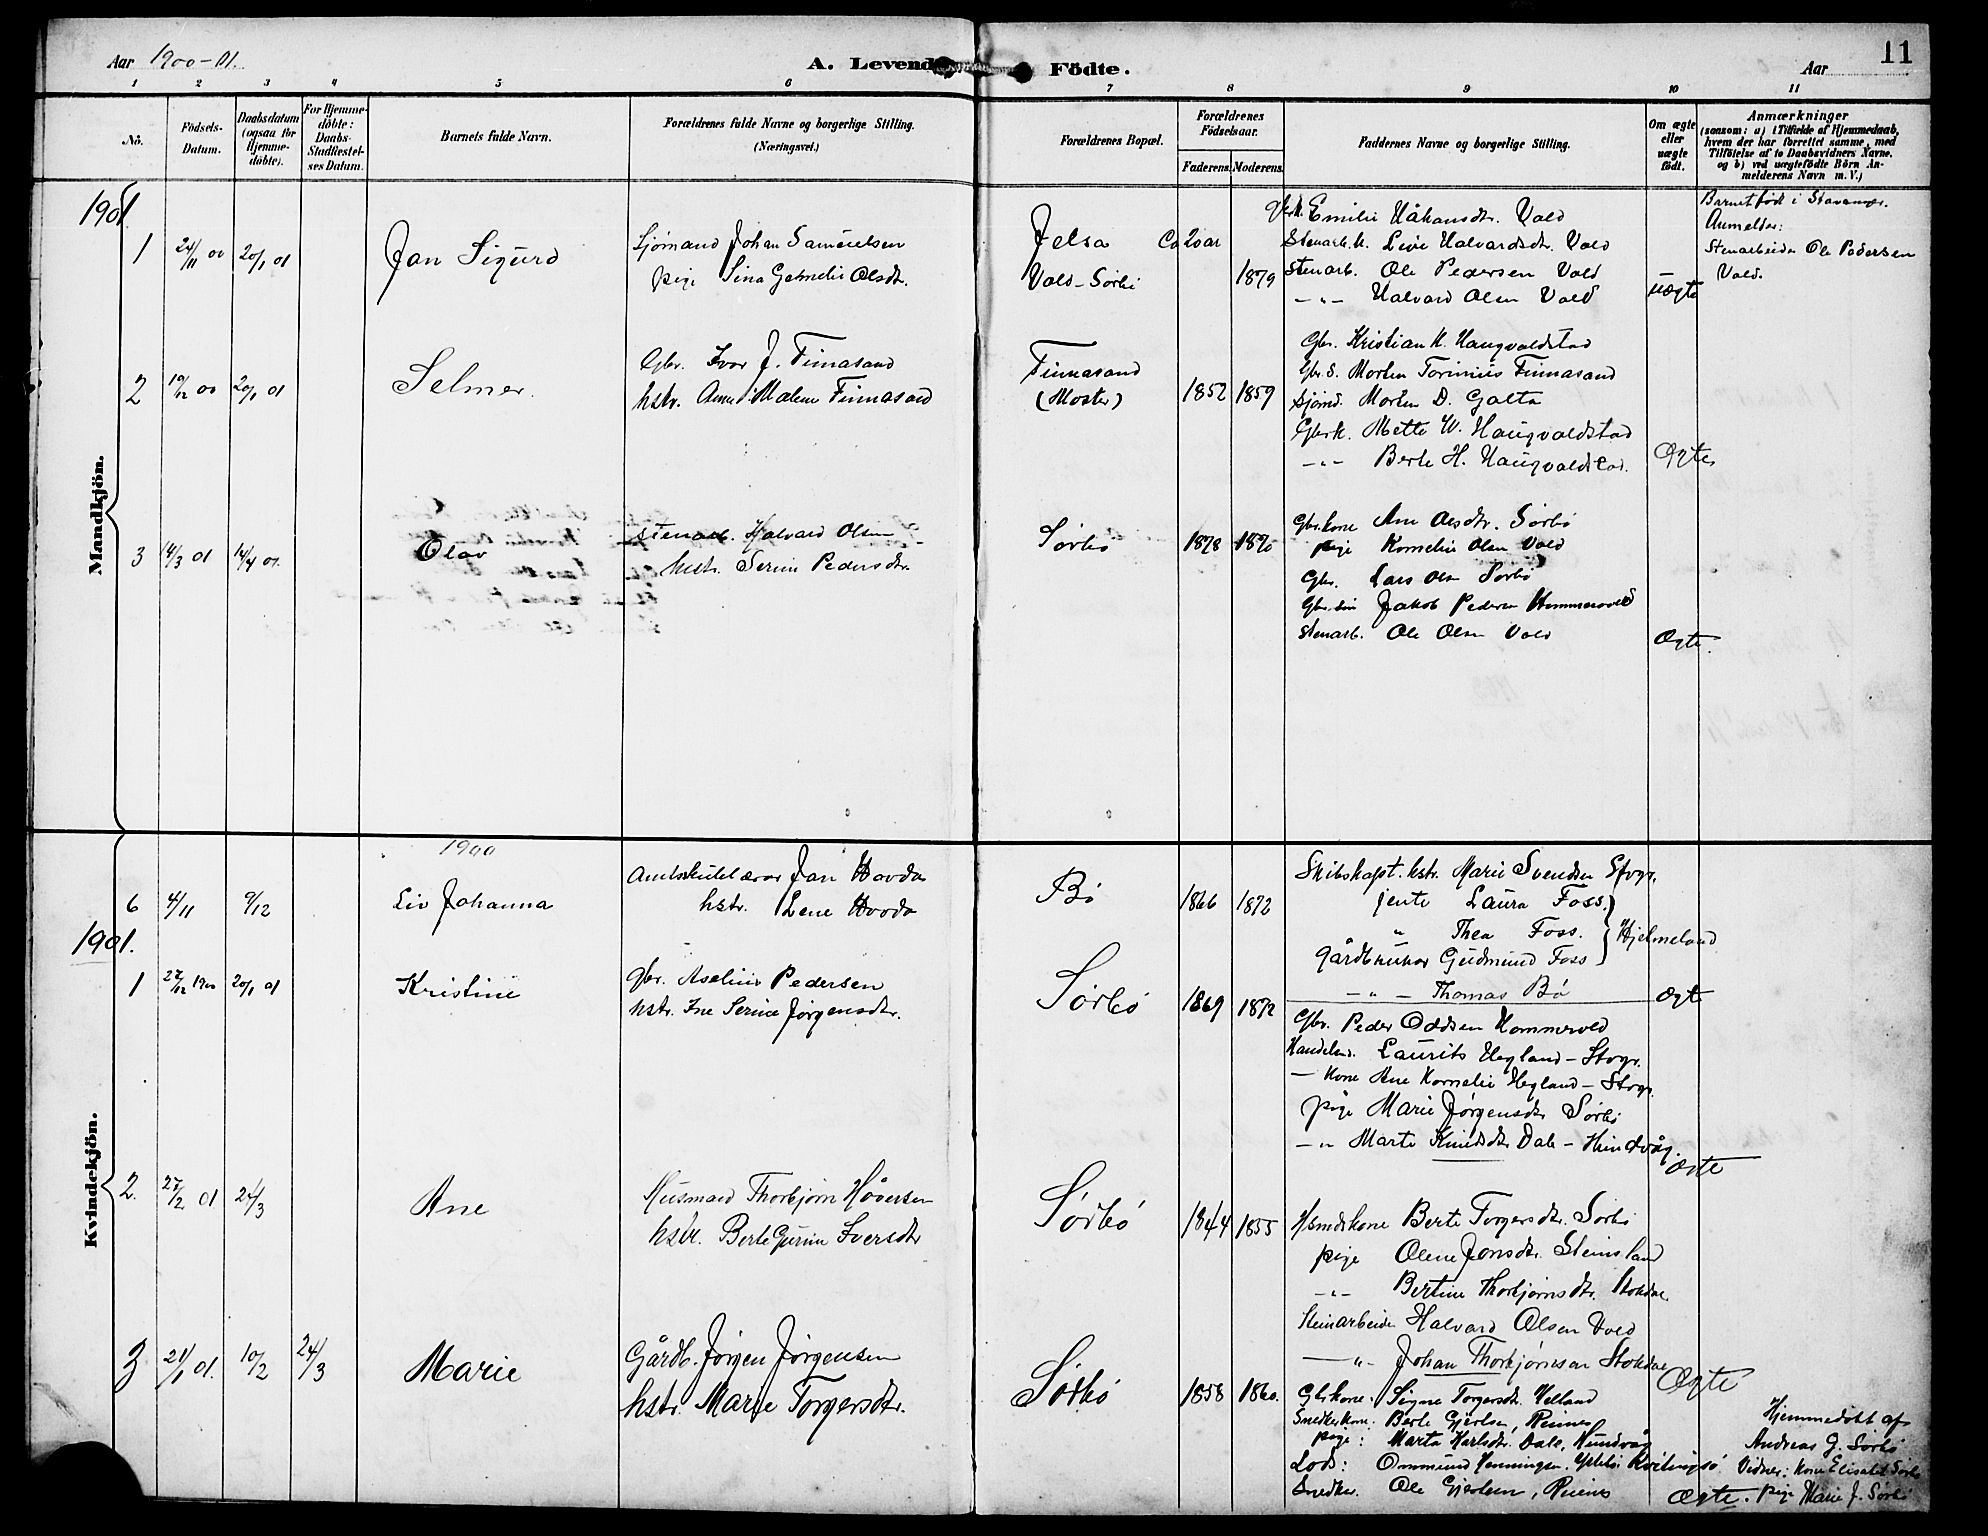 Aar 1900-01.
A. Levende Födte.
Aar
11
1 2 3 4 5 6 7 8 9 10 11
No.
Födsels-Datum.
Daabsdatum (ogsaa for Hjemme-döbte).
For Hjemme-döbte: Daabs-Stadfæstel-ses Datum.
Barnets fulde Navn.
Forældrenes fulde Navne og borgerlige Stilling. (Næringsvei.)
Forældrenes Bopæl.
Forældrenes Födselsaar.
Faderens. Moderens.
Faddernes Navne og borgerlige Stilling.
Om ægte eller uægte födt.
Anmærkninger
(saasom: a) i Tilfælde af Hjemmedaab, hvem der har forrettet samme, med Tilföielse af to Daabsvidners Navne, og b) ved uægtefödte Börn An-melderens Navn m. V.)
Mandkjön.
1901.
1 24/11 00 20/1 01
Jan Sigurd
Sjømand Johan Samuelsen
pige Sina Olsdtr.
Jelsa Ca 20 aar
Vold-Sørbø 1879
Emilie Håkansdtr. Vold
Stenarb.k. Live Halvardsdtr. Vold
Stenarb. Ole Pedersen Vold
-"- Halvard Olsen Vold
uægte
Barnet født i Stavanger.
Anmelder:
Stenarbeider Ole Pedersen
Vold.
2 19/12 00 20/1 01
Selmer.
Gbr. Ivar J. Finnasand
hstr. Anne Malene Finnasand
Finnasand
(Moster)
1852 1859
Gbr. Kristian H. Haugvaldstad
Gbr.s. Morten Torinius Finnasand
Sjømd. Morten D. Galta
Gbrk. Mette W. Haugvaldstad
-"- Berte H. Haugvaldstad.
Ægte
3 14/3 01 14/4 01.
Olav
Stenarb. Halvard Olsen
hustr. Serine Pedersdtr.
Sørbø
1878 1870
Gbr.kone Ane Olsdtr. Sørbø
pige Kornelie Olsen Vold
Gbr. Lars Olsen Sørbø
Gbr.søn Jakob Pedersen Hommervold
Stenarb. Ole Olsen Vold
Ægte.
Kvindekjön.
1900
6 4/11 9/12
Liv Johanna
Amtskolelærer Jan Hovda
hstr. Lene Hovda
Bø
1866 1872
Skibskapt. hstr. Marie Svendsen Stvgr.
jente Laura Foss.
" Thea Foss. Hjelmeland
Gårdbruker Gudmund Foss
-"- Thomas Bø
Ægte
1901.
1 27/12 1900 20/1 01
Kristine
Gbr. Aselius Pedersen
hstr. Ine Serine Jørgensdtr.
Sørbø
1869 1872
Gbr. Peder Oddsen Hommervold
Handelsm. Laurits Hegland - Stvgr.
- Kone Ane Kornelie Hegland - Stvgr.
pige Marie Jørgensdtr Sørbø
-"- Marte Knudsdtr Dale - Hundvåg.
Ægte
2. 27/2 01 24/3
Ane
Husmand Thorbjørn Håversen
hstr. Berte Gurine Iversdtr
Sørbø
1844 1855
Hsmdskone Berte Torgersdtr. Sørbø
pige Olene Jonsdtr. Steinsland
-"- Bertine Thorbjørnsdtr. Stokdal
Stenarbeider Halvard Olsen Vold
-"- Johan Thorbjørnsen Stokdal
Ægte
3 21/1 01. 10/2 24/3
Marie
Gårdb. Jørgen Jørgensen
hstr. Marie Torgersdtr.
Sørbø
1858 1860.
Gbrkone: Signe Torgersdtr. Helland
Snedkerkone: Berte Gjertsen, Reines
pige: Marta Karlsdtr. Dale, Hundvåg
Lods: Ommund Henningsen, Kvitingsø
Snedker. Ole Gjertsen, Reines
Ægte.
Hjemmedøbt af
Andreas G. Sørbø
Vidner: Kone Elisabet Sørbø
pige Marie J. Sørbø